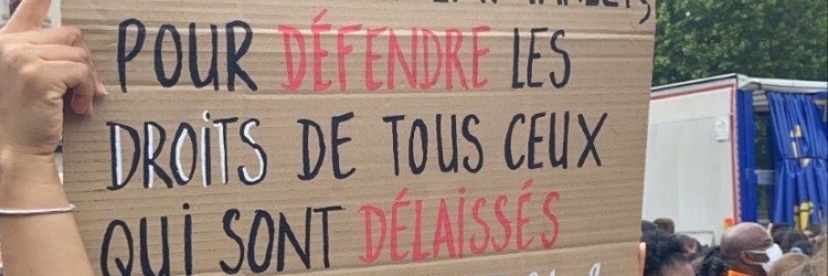 POUR DÉFENDRE LES
DROITS DE TOUS CEUX
QUI SONT DÉLAISSÉS